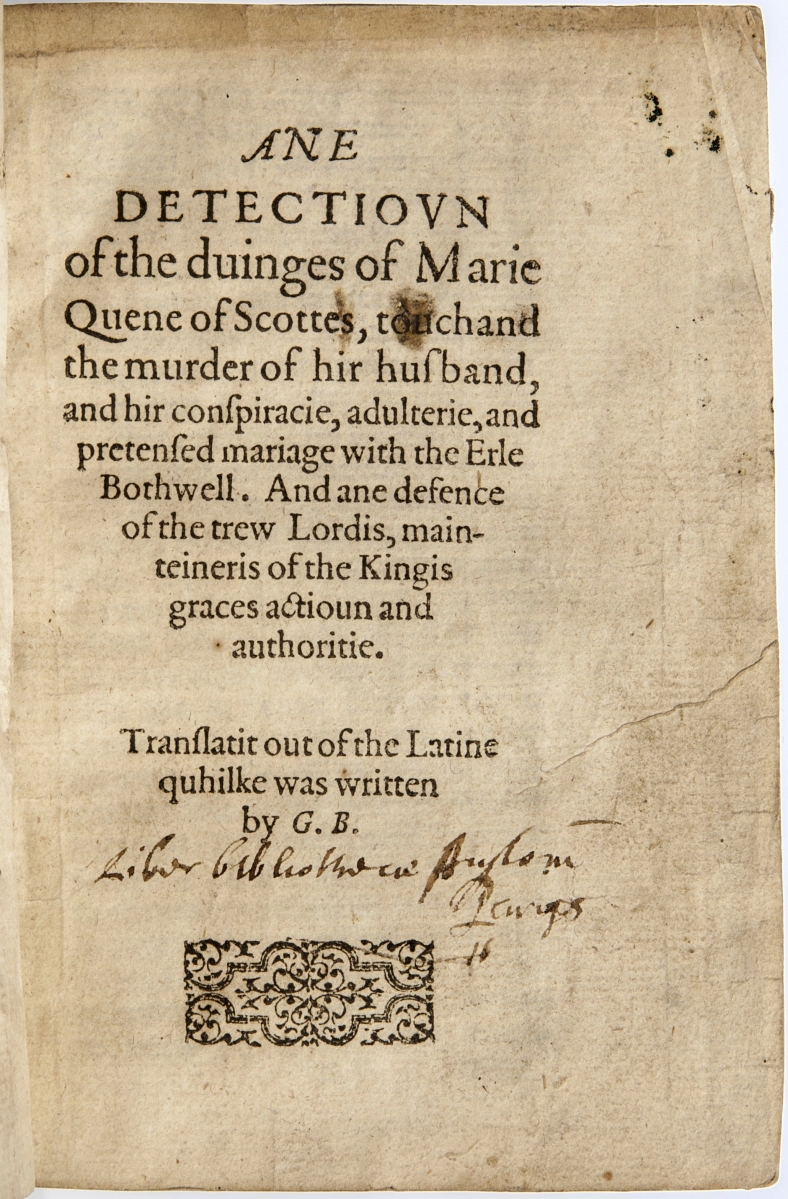 ANE
DETECTIOVN
of the duinges of Marie
Quene of Scottes, touchand
the murder of hir huſband,
and hir conſpiracie, adulterie, and
pretenſed mariage with the Erle
Bothwell. And ane defence
of the trew Lordis, main-
teineris of the Kingis
graces actioun and
authoritie.
Tranſlatit out of the Latine
quhilke was written
by G. B.
Liber bibliothecæ
16